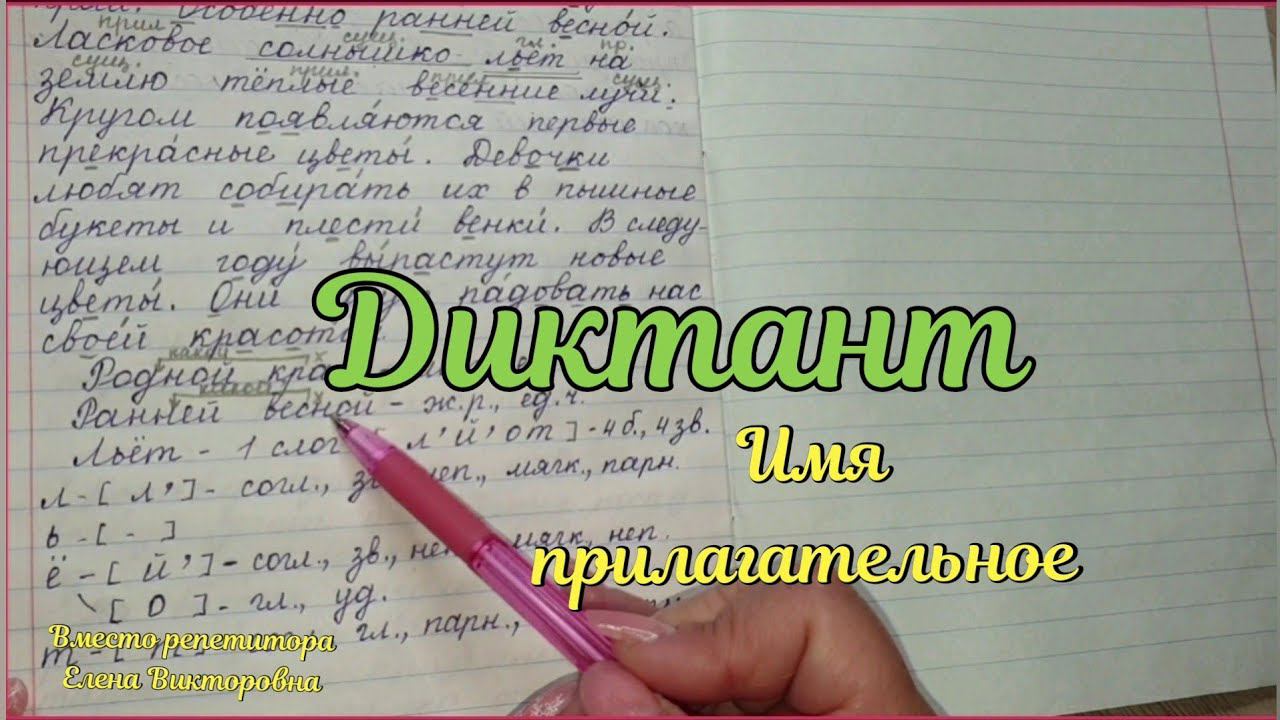 Особенно ранней весной.
прил. сущ. гл. пр.
Ласковое солнышко льёт на
сущ. прил. прил. сущ.
землю тёплые весенние лучи.
Кругом появляются первые
прекрасные цветы. Девочки
любят собирать их в пышные
букеты и плести венки. В следу-
ющем году вырастут новые
цветы. Они радовать нас
своей
какой х
Родной
какой х
Ранней весной - ж.р., ед.ч.
Льёт - 1 слог [л'й'от] - 4б., 4зв.
л - [л'] - согл., мягк., парн.
ь - [-]
ё - [й'] - согл., зв., мягк., неп.
[о] - гл., уд.
гл., парн.,
Диктант
Имя
прилагательное
Вместо репетитора
Елена Викторовна